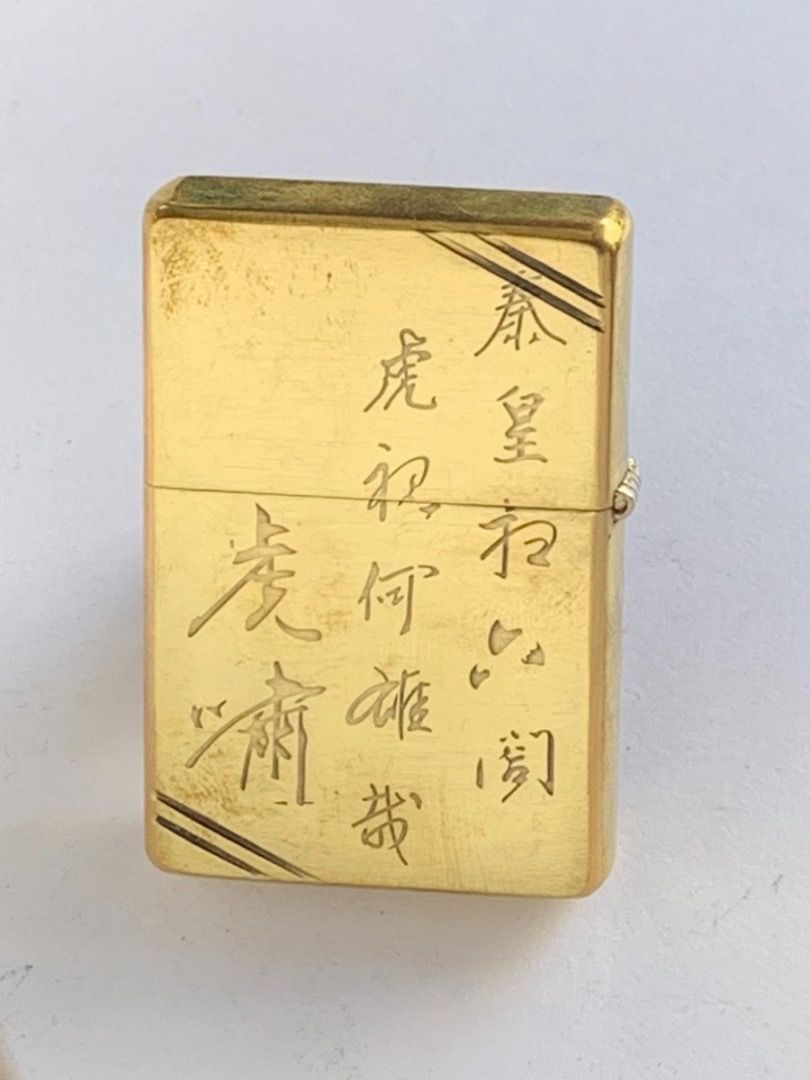 秦皇扫六閤
虎視何雄哉
虎嘯